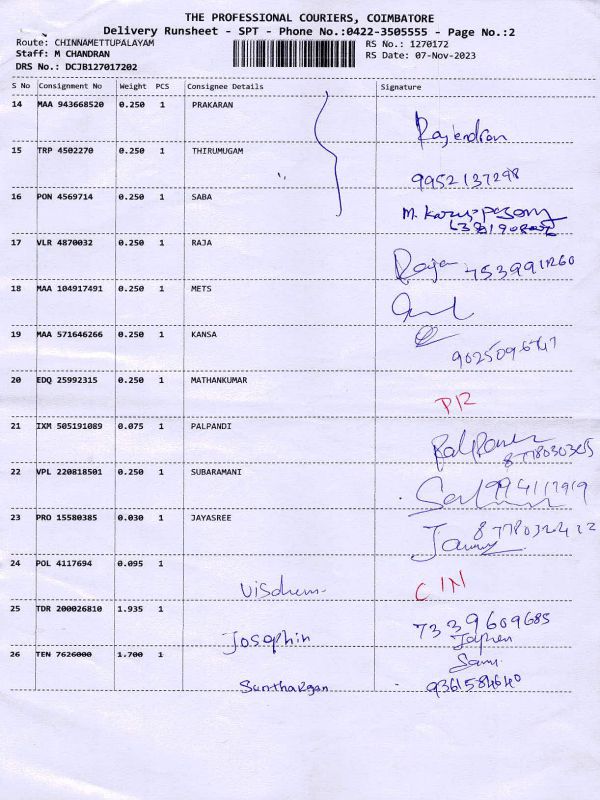 THE PROFESSIONAL COURIERS, COIMBATORE
Delivery Runsheet - SPT - Phone No.:0422-3505555 - Page No.:2
Route: CHINNAMETTUPALAYAM RS No.: 1270172
Staff: M CHANDRAN RS Date: 07-Nov-2023
DRS No.: DCJB127017202
S No Consignment No Weight PCS Consignee Details Signature
14 MAA 943668520 0.250 1 PRAKARAN
Rajendran
15 TRP 4502270 0.250 1 THIRUMUGAM
9952137298
16 PON 4569714 0.250 1 SABA
M. Karuppasamy
17 VLR 4870032 0.250 1 RAJA
Raja 7539911260
18 MAA 104917491 0.250 1 METS
19 MAA 571646266 0.250 1 KANSA
20 EDQ 25992315 0.250 1 MATHANKUMAR
21 IXM 505191089 0.075 1 PALPANDI
22 VPL 220818501 0.250 1 SUBARAMANI
9941117919
23 PRO 15580385 0.030 1 JAYASREE
24 POL 4117694 0.095 1
CIN
25 TDR 200026810 1.935 1
Josophin 7339609685
26 TEN 7626000 1.700 1
9361584640